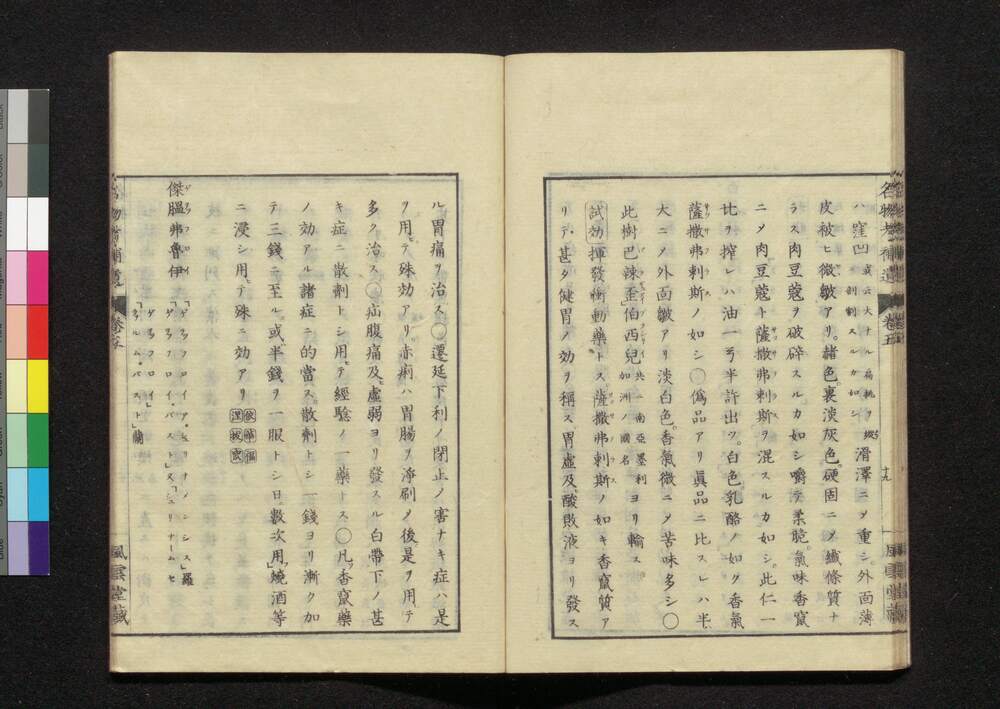 名物考補遺 巻五 十九 風雲堂藏
ハ窪凹 或云大ナル扁桃ヲ縦ニ割スルカ如シ 滑澤ニメ重シ。外面薄
皮被ヒ微皺アリ。赭色。裏淡灰色。硬固ニメ纖條質ナ
ラス肉豆蔻ヲ破碎スルカ如シ嚼テ柔脆。氣味香竄
ニメ肉豆蔻ト薩撒弗剌斯ヲ混スルカ如シ。此仁一
匕ヲ搾レハ油一弓半許出ツ。白色。乳酪ノ如ク香氣
薩撒弗剌斯ノ如シ○僞品アリ眞品ニ比スレハ半
大ニメ外面皺アリ淡白色。香氣微ニメ苦味多シ○
此樹巴辣歪伯西兒 共ニ南亞墨利加洲ノ國名 ヨリ輸ス。
試効 揮發衝動藥トス。薩撒弗剌斯ノ如キ香竄質ア
リテ甚タ健胃ノ効ヲ稱ス。胃虚及酸敗液ヨリ發ス
ル胃痛ヲ治ス○遷延下利ノ閉止ノ害ナキ症ハ是
ヲ用テ殊効アリ。赤痢ハ胃腸ヲ淨刷メ後是ヲ用テ
多ク治ス○疝腹痛及虚弱ヨリ發スル白帶下ノ甚
キ症ニ散劑トシ用テ經驗ノ一藥トス○凡香竄藥
ノ効アル諸症ニ的當ス。散劑トシ五錢ヨリ漸ク加
テ三錢ニ至ル。或半錢ヲ一服トシ日數次用。燒酒等
ニ浸シ用テ殊ニ効アリ
傑膃弗魯伊
風雲堂藏